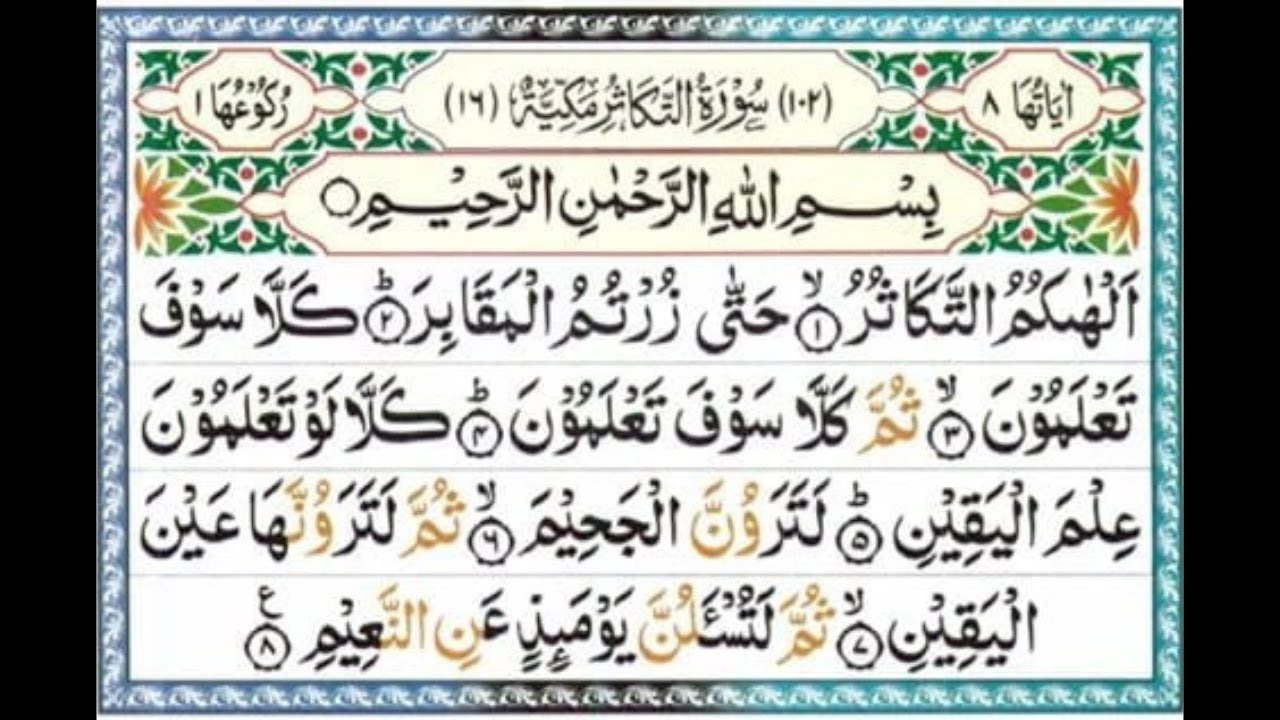 اٰيَاتُهَا ٨ (١٠٢) سُوْرَةُ التَّكَاثُرِ مَكِّيَّةٌ (١٦) رُكُوْعُهَا ١
بِسْمِ اللهِ الرَّحْمٰنِ الرَّحِيْمِ ۝
اَلْهٰىكُمُ التَّكَاثُرُ ۙ‏﴿١﴾ حَتّٰى زُرْتُمُ الْمَقَابِرَ ؕ‏﴿٢﴾ كَلَّا سَوْفَ
تَعْلَمُوْنَ ۙ‏﴿٣﴾ ثُمَّ كَلَّا سَوْفَ تَعْلَمُوْنَ ؕ‏﴿٤﴾ كَلَّا لَوْ تَعْلَمُوْنَ
عِلْمَ الْيَقِيْنِ ؕ‏﴿٥﴾ لَتَرَوُنَّ الْجَحِيْمَ ۙ‏﴿٦﴾ ثُمَّ لَتَرَوُنَّهَا عَيْنَ
الْيَقِيْنِ ۙ‏﴿٧﴾ ثُمَّ لَتُسْـَٔلُنَّ يَوْمَىِٕذٍ عَنِ النَّعِيْمِ ﴿٨﴾ ع